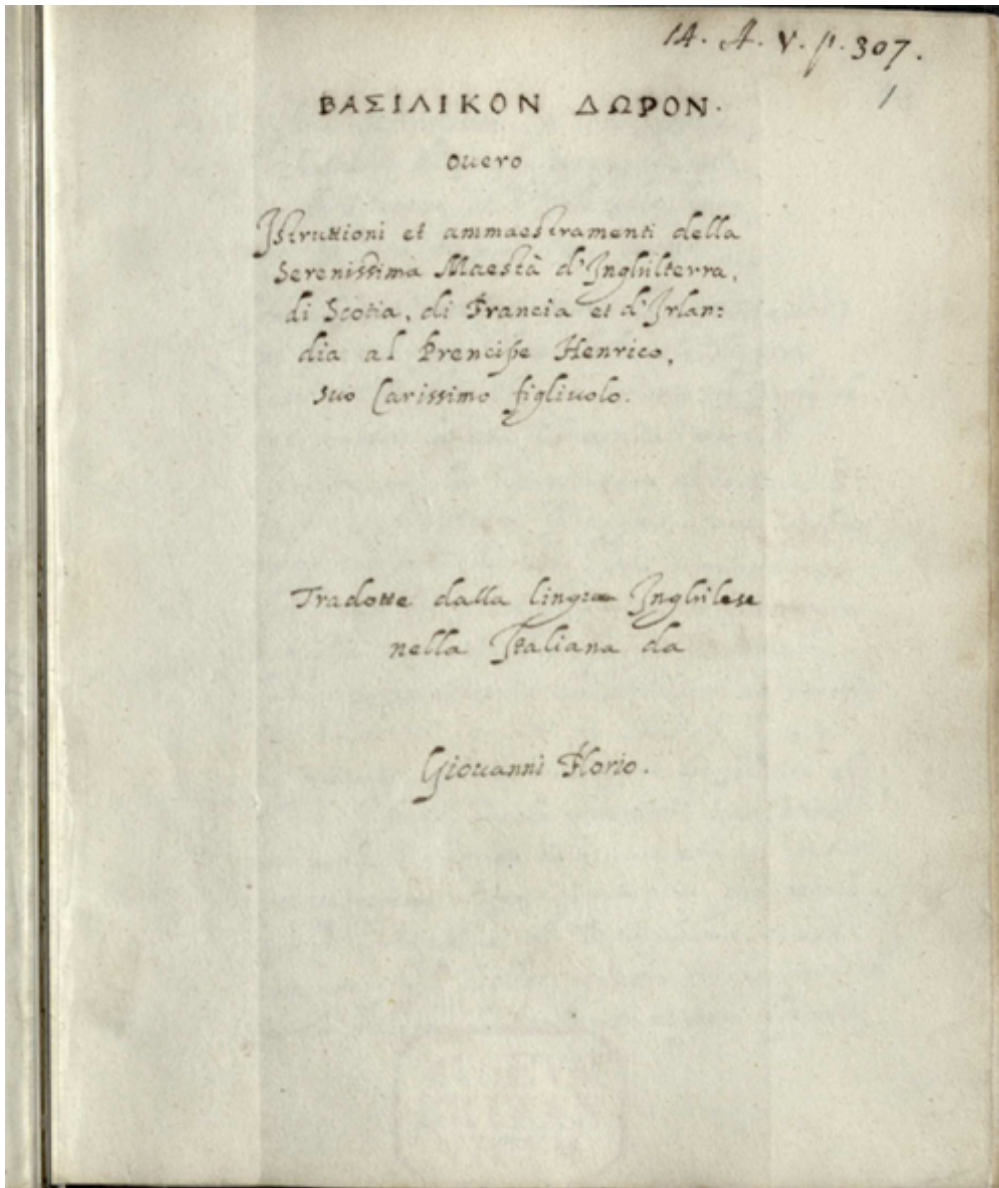 14. A. V. p. 307.
1
ΒΑΣΙΛΙΚΟΝ ΔΩΡΟΝ.
ouero
Istruttioni et ammaestramenti della
Serenissima Maestà d'Inghilterra,
di Scotia, di Francia et d'Irlan:
dia al Prencipe Henrico,
suo Carissimo figliuolo.
Tradotte dalla lingua Inghilese
nella Italiana da
Giouanni Florio.